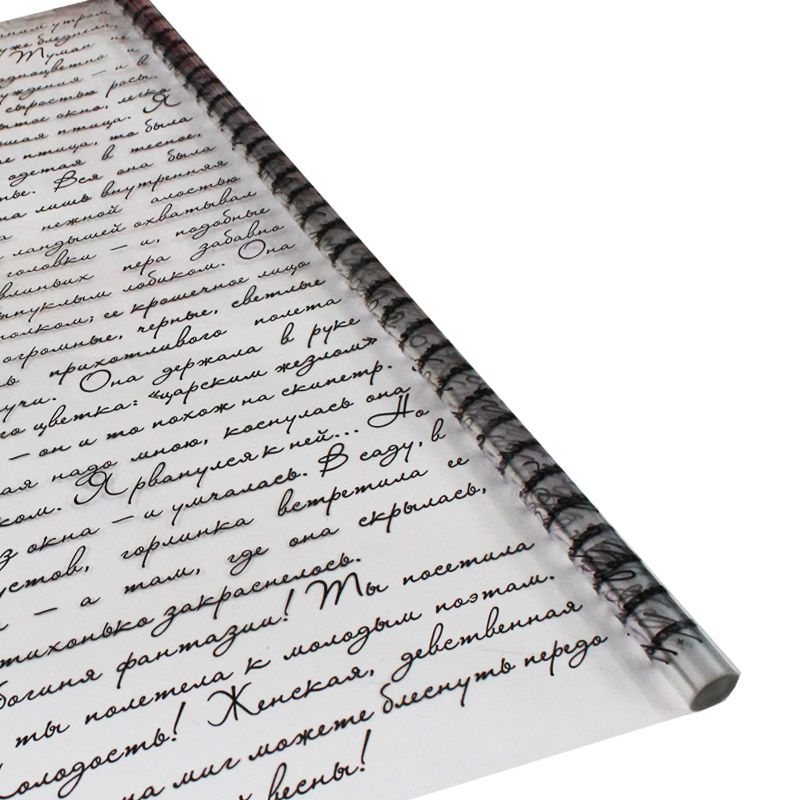 нним утром
уже бледнела,
Туман не
одноцветно и
уждения — и в
сыростью росы.
ытое окно, легко
ошая птица. Я
е птица, то была
одетая в тесное,
тье. Вся она была
на лишь внутренняя
а нежной алостью
ландышей охватывал
головки — и, подобные
влиньих пера забавно
ыпуклым лобиком. Она
олком; ее крошечное лицо
огромные, черные, светлые
ь прихотливого полета
учи. Она держала в руке
го цветка: «царским жезлом»
— он и то похож на скипетр.
ая надо мною, коснулась она
ком. Я рванулся к ней... Но
з окна — и умчалась. В саду, в
устов, горлинка встретила ее
— а там, где она скрылась,
тихонько закраснелось.
богиня фантазии! Ты посетила
ты полетела к молодым поэтам.
олодость! Женская, девственная
на миг можете блеснуть передо
весны!